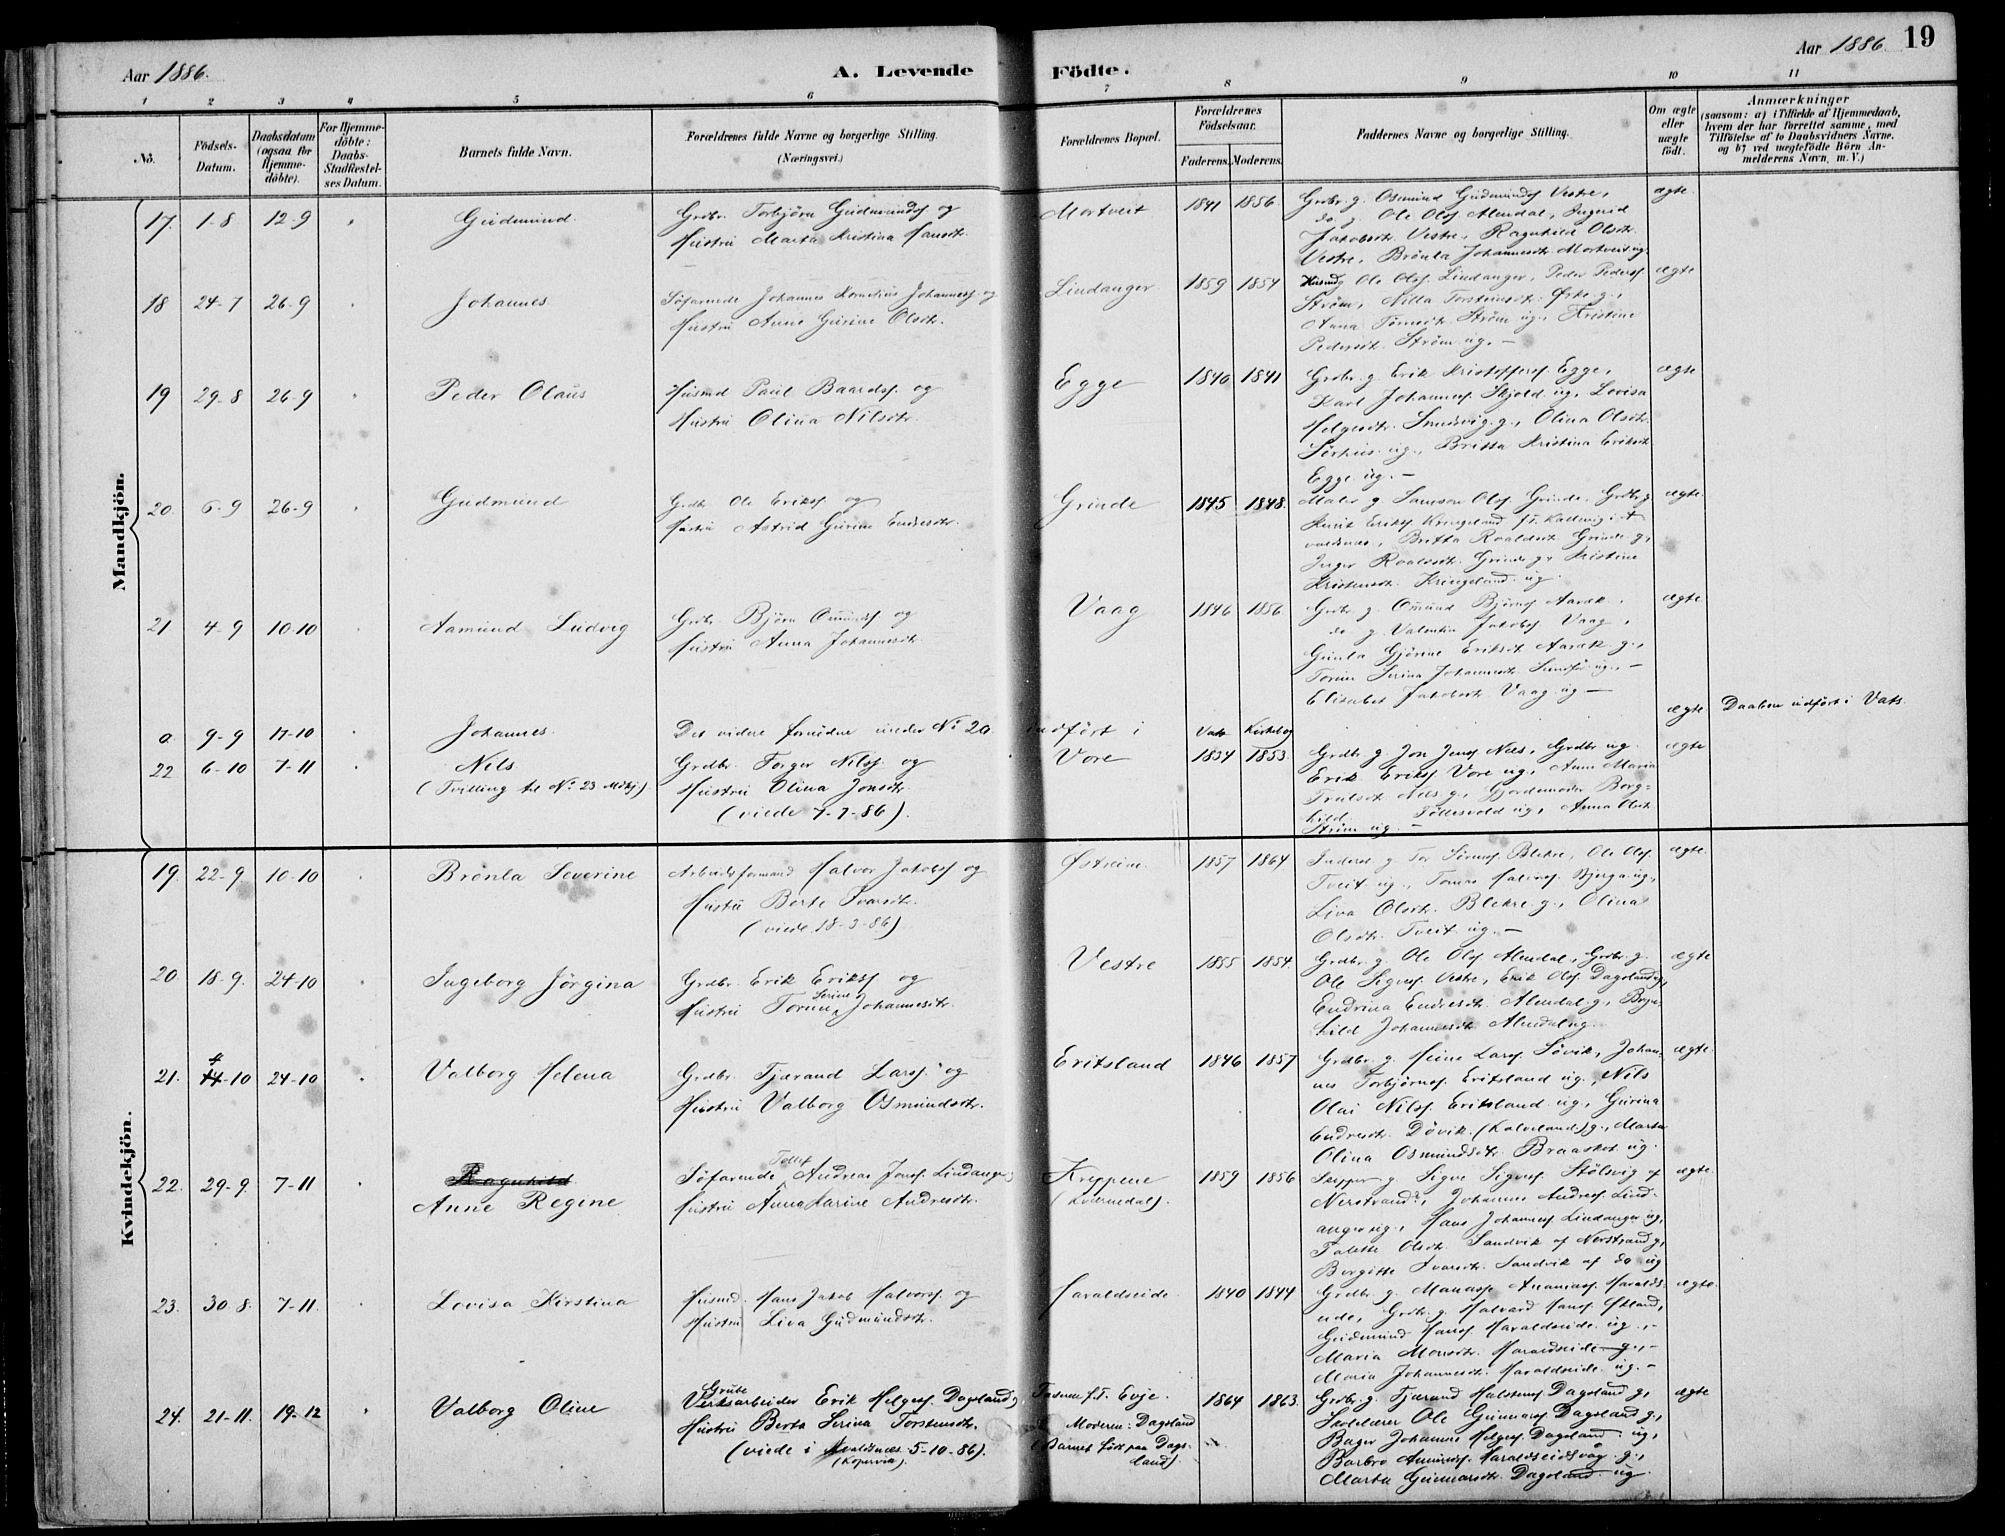 Aar 1886.
A. Levende
Födte.
Aar 1886.
19
1 2 3 4 5 6 7 8 9 10 11
No.
Födsels-
Datum.
Daabsdatum
(ogsaa for
Hjemme-
döbte).
For Hjemme-
döbte:
Daabs-
Stadfestel-
ses Datum.
Barnets fulde Navn.
Forældrenes fulde Navne og borgerlige Stilling.
(Næringsvei.)
Forældrenes Bopæl.
Forældrenes
Födselsaar.
Faderens. Moderens.
Faddernes Navne og borgerlige Stilling.
Om ægte
eller
uægte
födt.
Anmærkninger
(saasom: a) i Tilfælde af Hjemmedaab,
hvem der har forrettet samme, med
Tilföielse af to Daabsvidners Navne,
og b) ved uægtefödte Börn An-
melderens Navn, m. V.)
Mandkjön.
17. 1-8 12-9 Gudmund.
Grdbr. Torbjörn Gudmunds. og
Hustru Marta Kristina Hansdtr.
Mortveit 1841 1856
Grdbr. g. Osmund Gudmunds. Vestre,
do g. Ole Ols. Almdal, Ingerid
Jakobsdtr. Vestre, Ragnhild Olsdtr.
Vestre, Brönla Johannesdtr. Mortveit ug.
ægte
18 24-7 26-9 Johannes
Söfarende Johannes Kornelius Johanness. og
Hustru Anne Gurine Olsdtr.
Lindanger 1859 1854
Husmd g. Ole Ols. Lindanger, Peder Peders.
Ström, Nilla Torsteinsdtr. Östre g.,
Anna Tönnesdtr. Ström ug., Kristine
Pedersdtr. Ström ug. —
ægte
19 29-8 26-9 Peder Olaus
Husmd Paul Baards. og
Hustru Olina Nilsdtr.
Egge 1840 1841
Grdbr. g. Erik Kristoffers. Egge,
Karl Johanness. Skjold ug., Lovisa
Helgesdtr. Smedsvig g., Olina Olsdtr.
Sörhus ug., Britta Kristina Eriksdtr.
Egge ug. —
ægte
20. 6-9 26-9 Gudmund
Grdbr. Ole Eriks. og
Hustru Astrid Gurine Endresdtr.
Grinde 1845 1848.
Maler g. Samson Ols. Grinde, Grdbr. g.
Eriks. Kringeland f.t. Kallevig i A-
valdsnes, Britta Roaldsdtr. Grinde g.,
Inger Roaldsdtr. Grinde g., Kristine
Kristensdtr. Kringeland ug.
ægte
21 4-9 10-10 Aamund Ludvig
Grdbr. Björn Omunds. og
Hustru Anna Johannesdtr.
Vaag 1846 1856
Grdbr. g. Omund Björns. Aarek,
do g. Valentin Jakobs. Vaag,
Gunla Gjörine Eriksdtr. Aarek g.,
Torine Serina Johannesdtr. ug., —
Elisabet Jakobsdtr. Vaag ug —
ægte
a. 9-9 17-10 Johannes.
Det videre fornödne under No 20 indfört i Vats Kirkebog
ægte Daaben udfört i Vats.
22 6-10 7-11 Nils
(Tvilling til No. 23 Mdkj.)
Grdbr. Torger Nils. og
Hustru Olina Jonsdtr.
(viede 7-7-86).
Vore 1834 1853.
Grdbr. g. Jon Jens. Nes, Grdbr. ug.
Erik Eriks. Vore ug., Anne Maria
Trulsdtr. Nes g., Gjordemoder Borg-
hild Töllesvold ug., Anna Olsdtr.
Ström ug. —
ægte
Kvindekjön.
19. 22-9 10-10 Brönla Severine
Arbeidsformand Halvor Jakobs. og
Hustru Berte Ivarsdtr.
(viede 18-3-86)
Östreim 1857 1864
Inderst g. Tor Sörens. Blikre, Ole Ols.
Tveit ug., Tönnes Halvors. Bjerga ug.,
Liva Olsdtr. Blikre g., Olina
Olsdtr. Tveit ug. —
ægte
20 18-9. 24-10 Ingeborg Jörgina
Grdbr. Erik Eriks. og
Serine
Hustru Torine Johannesdtr.
Vestre 1855 1854.
Grdbr. g. Ole Ols. Almdal, Grdbr. g.
Ole Sigves. Vestre, Erik Ols. Dagsland ug.,
Endrina Endresdtr. Almdal g., Bryn-
hild Johannesdtr. Almdal ug.
ægte
21. 4-10 24-10 Valborg Helena
Grdbr. Tjærand Lars. og
Hustru Valborg Osmundsdtr.
Eritsland 1846 1857
Grdbr. g. Heine Lars. Lövik, Johan-
nes Torbjörns. Eritsland ug., Nils
Olai Nils. Eritsland ug., Gurina
Endresdtr. Dövik (Halveland) g., Marta
Olina Osmundsdtr. Braaskot ug.
ægte.
22. 29-9. 7-11 Ragnhild
Anne Regine.
Tollef
Söfarende Andreas Jons. Lindanger,
Hustru Anna Karine Andresdtr.
Kreppene
(Kvernedal).
1859 1856
Skipper g. Sigve Sigves. Stölsvig af
Nerstrand, Johannes Andreas. Lind-
anger ug., Hans Johanness. Lindanger ug.,
Talette Olsdtr. Sandvik af Nerstrand g.,
Borgitte Ivarsdtr. Sandvik af do ug
ægte
23. 30-8. 7-11. Lovisa Kirstina
Husmd. Hans Jakob Halvors. og
Hustru Liva Gudmundsdtr.
Haraldseide 1840 1844
Grdbr. g. Manass. Ananias. Haralds-
eide, Grdbr. g. Halvard Hans. Östland,
Gudmund Hans. Haraldseide ug., —
Maria Monsdtr. Haraldseide g., —
Maria Johannesdtr. Haraldseide ug. —
ægte
24. 21-11. 19-12 Valborg Oline
Grube
Verksarbeider Erik Helges. Dagsland,
Hustru Berta Serina Torstensdtr.
(viede i Avaldsnes 5-10-86).
(Kopervik).
f.T. Evje.
Moderen: Dagsland
(Barnet födt paa Dags-
land).
1864 1863.
Grdbr. g. Tjærand Halstens. Dagsland g.,
Skolelærer Ole Gunnars. Dagsland g.,
Bager Johannes Helges. Dagsland ug.,
Barbro Amunds. Haraldseidsvåg g.,
Marta Gunnarsdtr. Dagsland ug.
ægte